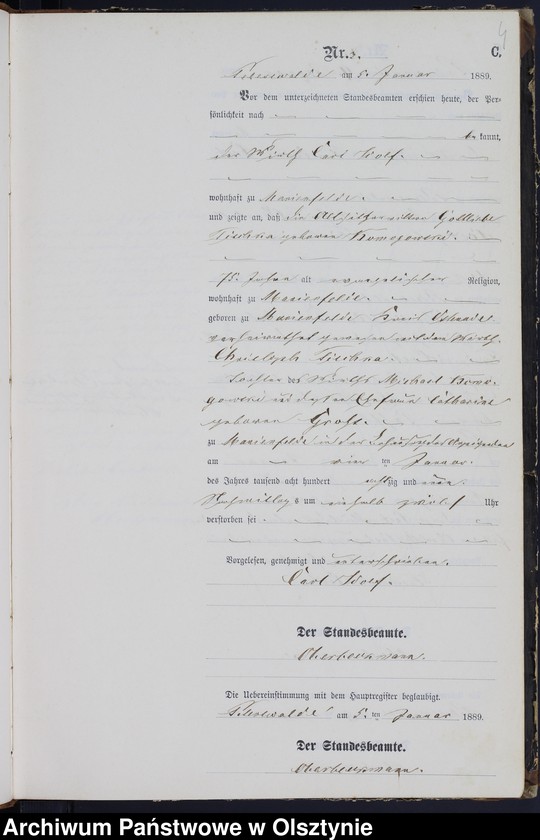 4
Nr. 3.
C.
am 5. Januar 1889.
Vor dem unterzeichneten Standesbeamten erschien heute, der Per-
sönlichkeit nach
be kannt,
der Wirth Carl
wohnhaft zu Marienfelde.
und zeigte an, daß die Altsitzerwittwe Gottliebe
geborene
75 Jahre alt evangelischer Religion,
wohnhaft zu Marienfelde.
geboren zu Marienfelde Kreis Osterode
verheirathet gewesen mit dem Wirth
Christoph
Tochter des Wirths Michael
und dessen Ehefrau Catharine
geborene
zu Marienfelde in der Behausung des Anzeigenden
am vier ten Januar
des Jahres tausend acht hundert achtzig und neun
Nachmittags um ein halb zwölf Uhr
verstorben sei
Vorgelesen, genehmigt und unterschrieben.
Carl
Der Standesbeamte.
Die Uebereinstimmung mit dem Hauptregister beglaubigt.
am 5. ten Januar 1889.
Der Standesbeamte.
Archiwum Państwowe w Olsztynie